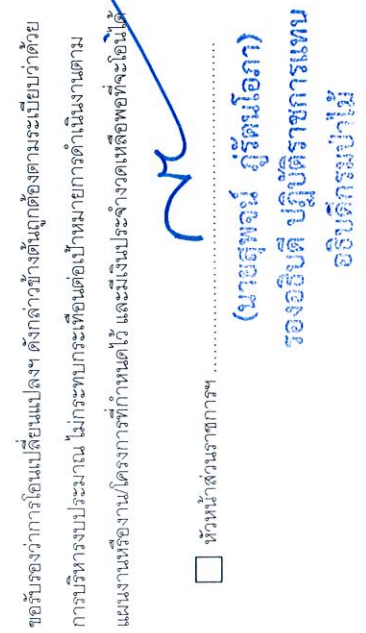 ขอรับรองว่าการโอนเปลี่ยนแปลงฯ ดังกล่าวข้างต้นถูกต้องตามระเบียบว่าด้วย
การบริหารงบประมาณ ไม่กระทบกระเทือนต่อเป้าหมายการดำเนินงานตาม
แผนงานหรืองาน/โครงการที่กำหนดไว้ และมีเงินประจำงวดเหลือพอที่จะโอนได้
หัวหน้าส่วนราชการฯ ........................................
(นายสุพจน์ ภู่รัตนโอภา)
รองอธิบดี ปฏิบัติราชการแทน
อธิบดีกรมป่าไม้